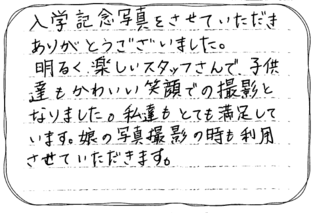 入学記念写真をさせていただき
ありがとうございました。
明るく楽しいスタッフさんで、子供
達もかわいい笑顔での撮影と
なりました。私達もとても満足して
います。娘の写真撮影の時も利用
させていただきます。